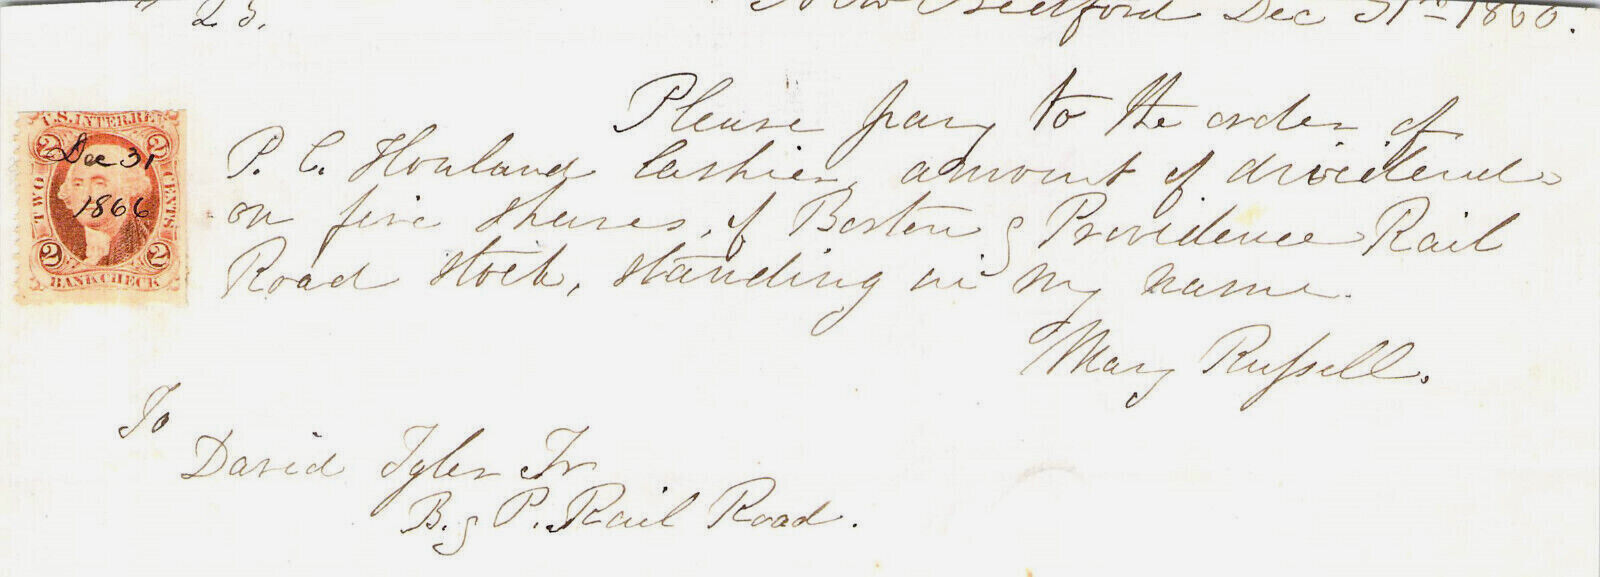 $ 25.
New Bedford Dec 31st 1866.
Please pay to the order of
P. C. Howland Cashier, amount of dividend
on five shares, of Boston & Providence Rail
Road Stock, standing in my name.
Mary Russell.
To
David Tyler Tr
B. & P. Rail Road.
U.S. INTER. REV
2 2
Dec 31
1866
TWO CENTS
2 2
BANK CHECK